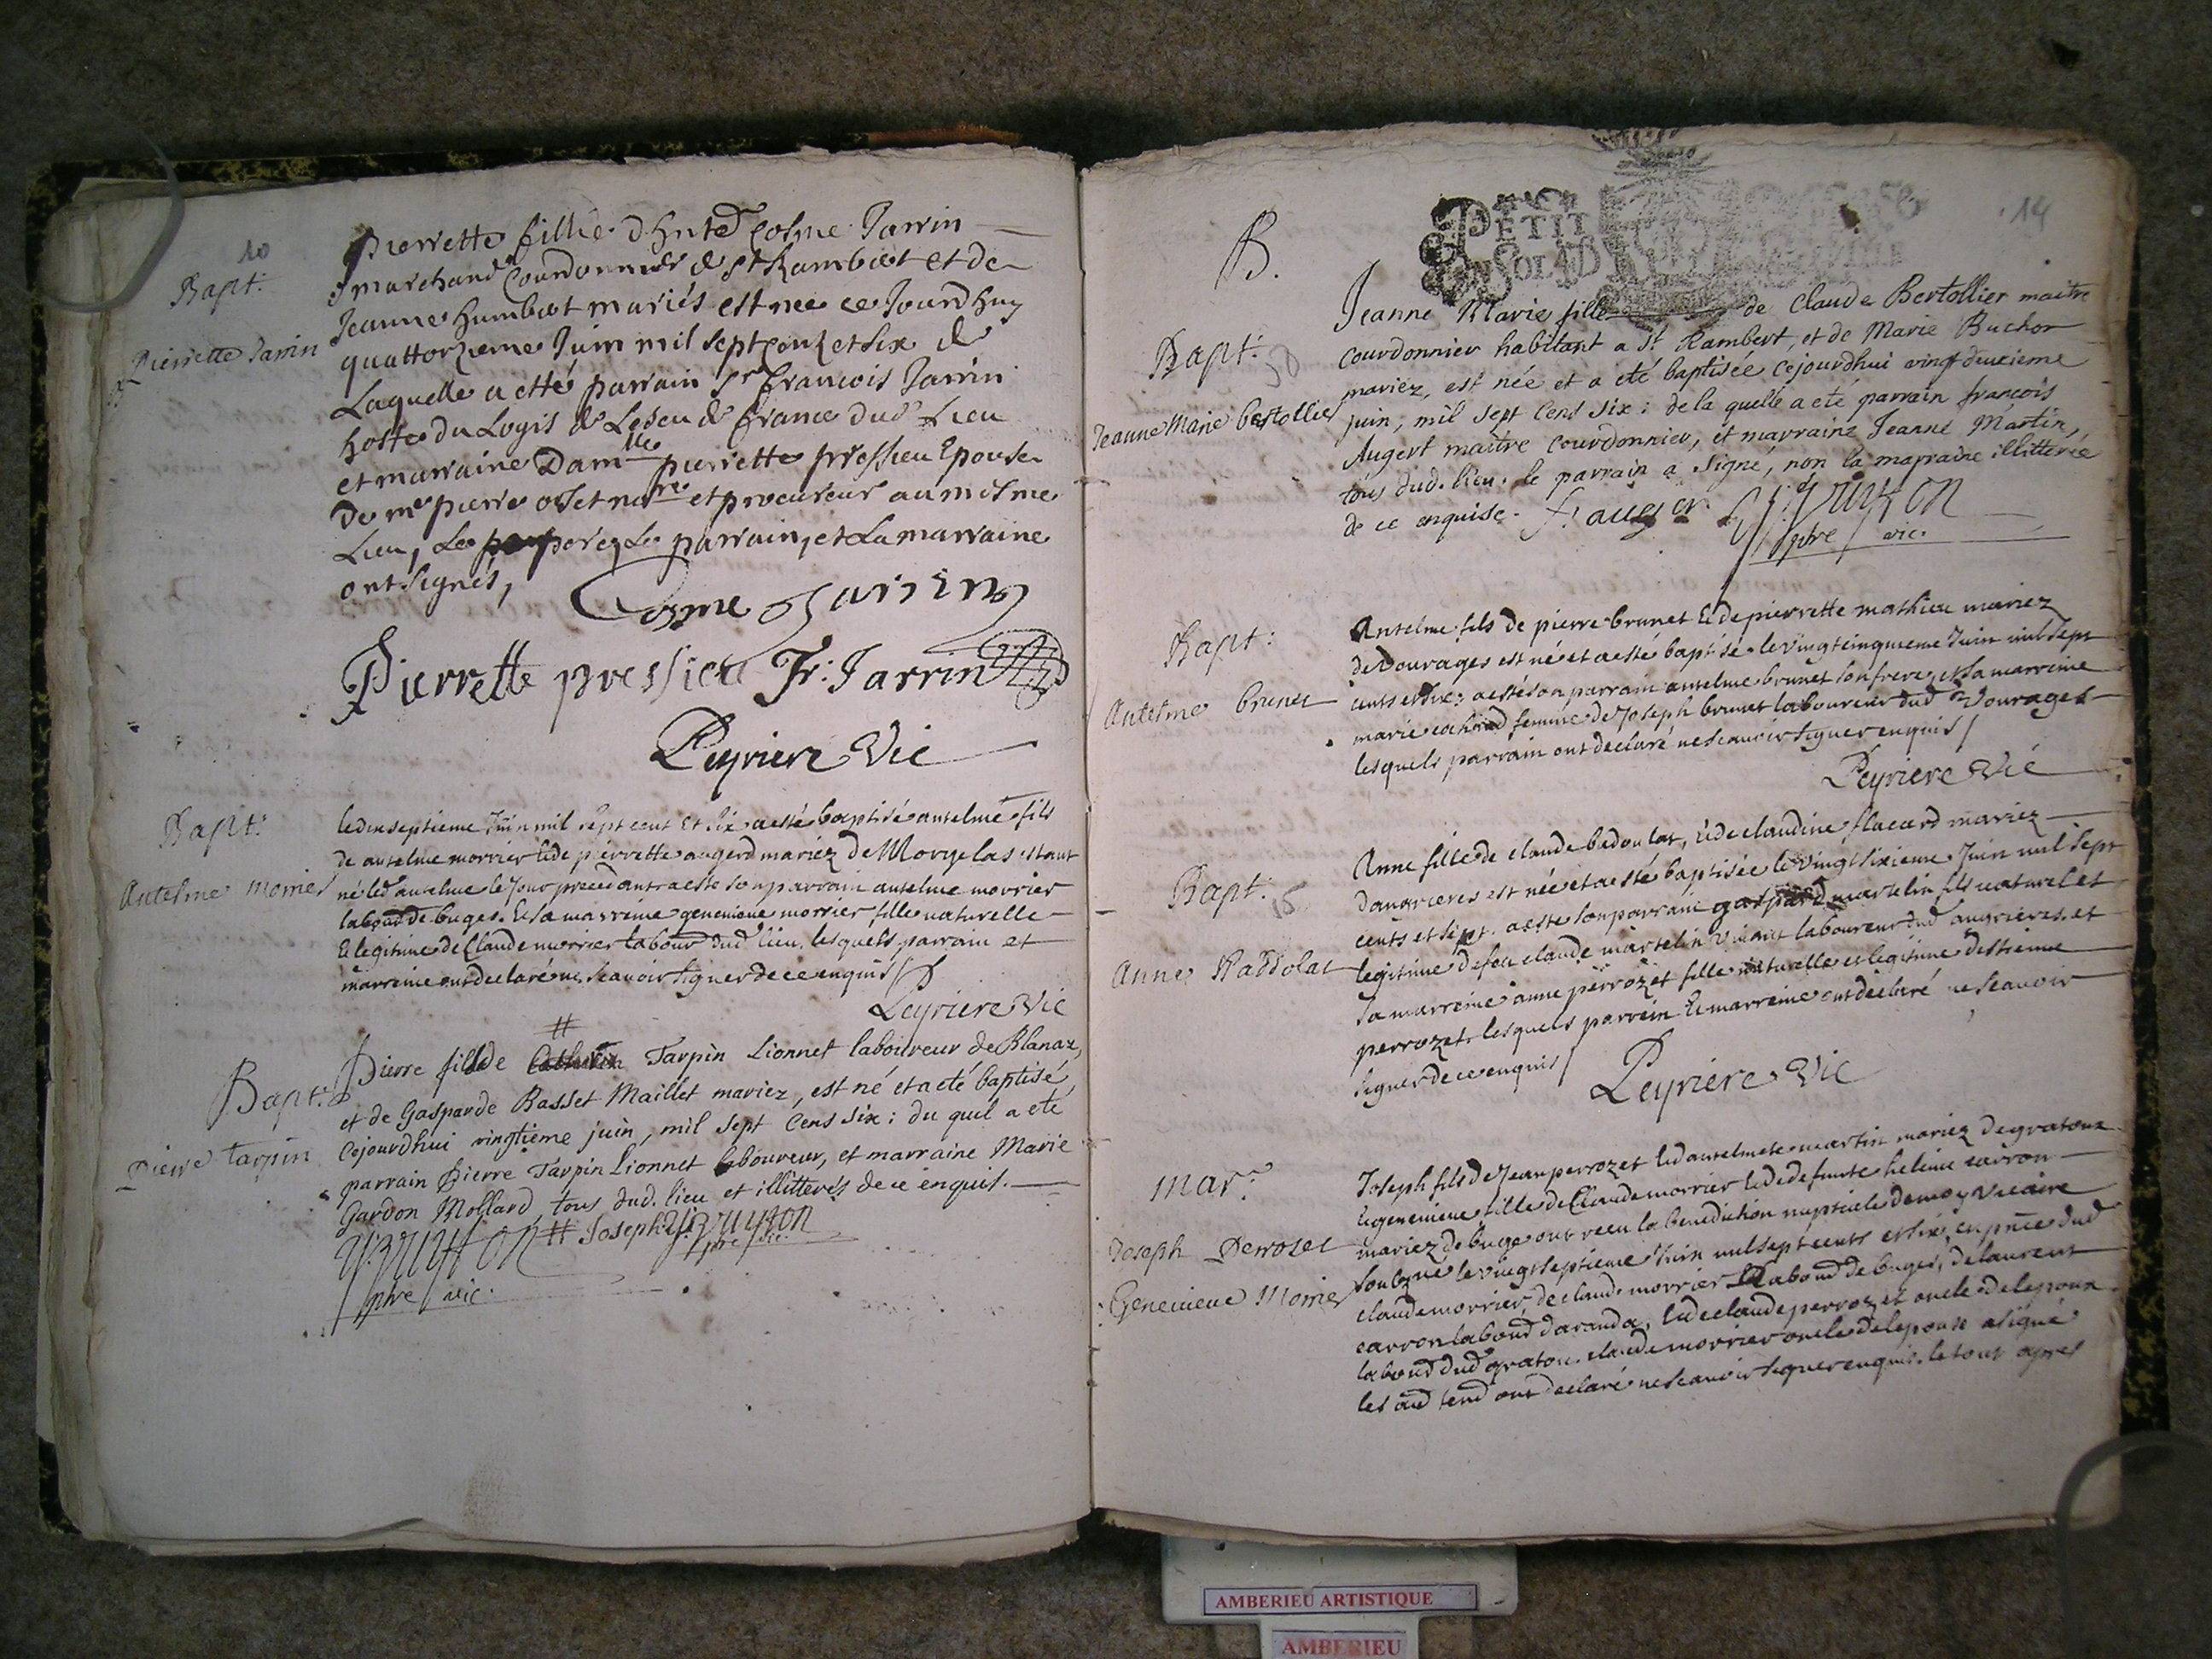 10
Bapt:
Pierrette Jarrin
Pierrette fillie d'hnte Cosme Jarrin
marchand Courdonnier de St Rambert et de
Jeanne humbert mariés est nee ce Jourdhuy
quattorzieme Juin mil sept cent et six de
Laquelle a etté parrain Sr francois Jarrin
hoste du Logis de Lescu de france dud Lieu
et marraine Damlle pierrette pressieu Epouse
De me pierre orset nore et procureur au mesme
Lieu, Le pere, Le parrain, et La marraine
ont signés,
Cosme Jarrin
Pierrette pressieu Fr: Jarrin
Leyriere Vic
Bapt:
Antelme Morrier
le dixseptieme Juin mil sept cent Et six a esté baptisé antelme fils
de antelme morrier Et de pierrette augerd mariez de Morgelas estant
né led antelme le Jour precedant a este son parrain antelme morrier
laboud de buges. Et sa marreine genevieve morrier fille naturelle
Et legitime de Claude morrier labour dud lieu. lesquels parrain et
marreine ont declaré ne scavoir signer de ce enquis /
Leyriere Vic
Bapt:
Pierre tarpin
#
Pierre fils de Tarpin Lionnet laboureur de Blanaz,
et de Gasparde Basset Maillet mariez, est né et a eté baptisé
Cejourdhui vingtieme juin, mil sept Cens six: du quil a eté
parrain Pierre Tarpin Lionnet laboureur, et marraine Marie
Gardon Mollard, tous dud. lieu et illitterés de ce enquis.
# Joseph
pbre vic.
pbre / vic.
14
B.
PETIT
Bapt:
Jeanne Marie bertollier
Jeanne Marie fille de Claude Bertollier maitre
courdonnier habitant a St Rambert, et de Marie Buchon
mariez, est née et a eté baptisée cejourdhui vingt deuxieme
juin, mil sept Cens six: de la quelle a eté parrain francois
Augert maitre courdonnier, et marraine Jeanne Martin,
tous dud. lieu. le parrain a signé, non la marraine illitterée
de ce enquise. f: auger
pbre / vic.
Bapt:
Antelme brunet
Antelme fils de pierre brunet Et de pierrette mathieu mariez
de Vourages est né et a esté baptisé le vingtcinquieme Juin mil sept
cents et six; a esté son parrain antelme brunet son frere, et sa marreine
marie cochard femme de Joseph brunet laboureur dud Vourages
lesquels parrain ont declaré ne scavoir signer enquis /
Leyriere Vic
Bapt: 15
Anne Baddolat
Anne fille de claude badoulat, Et de claudine flacard mariez
danarieres est née et a esté baptisée le vingt sixieme Juin mil sept
cents et sept. a este son parrain gaspard martelin fils naturel et
legitime de feu claude martelin vivant laboureur dud angrieres. et
sa marreine anne perrozet fille naturelle et legitime destienne
perrozet. lesquels parrein Et marreine ont déclaré ne scavoir
signer de ce enquis /
Leyriere Vic
Mar:
Joseph Perrozet
Genevieve Morrier
Joseph fils de Jean perrozet Et d'antelmete martin mariez de gratoux
Et genevieve fille de Claude morrier Et de defunte heleine carron
mariez de buge ont receu la benediction nuptiale de moy Vicaire
soubzné le vingtseptieme Juin mil sept cents et six, en pnce dud
claude morrier, de claude morrier laboud de buges, de laurent
carron laboud daranda, Et de claude perrozet oncle de lepoux
laboud dud gratoux. claude morrier oncle de lepouse a signé
les aud tend ont declaré ne scavoir signer enquis. le tout apres
AMBERIEU ARTISTIQUE
AMBERIEU